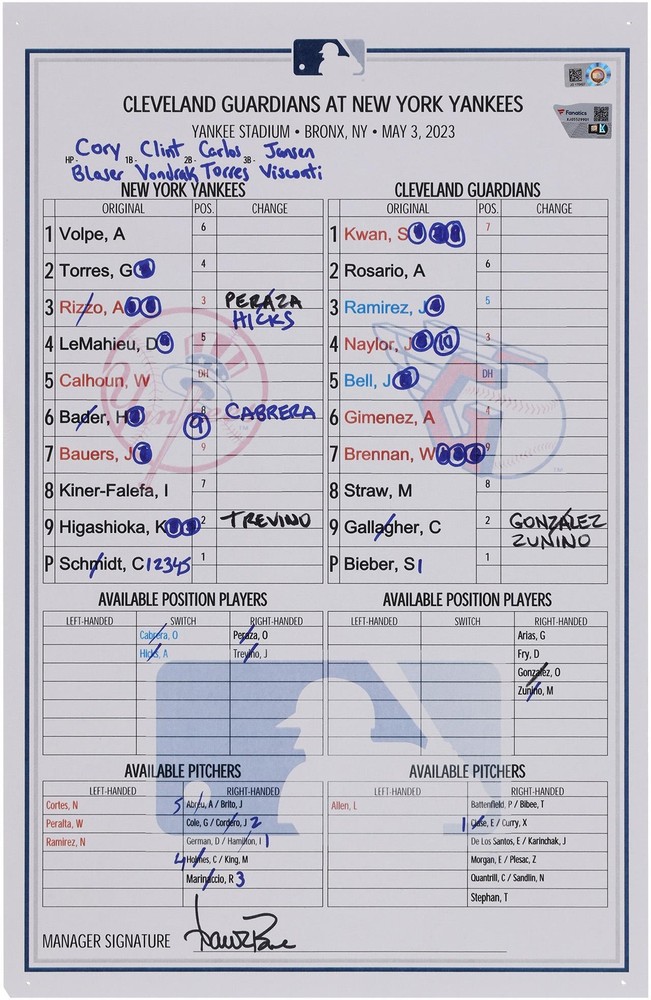 CLEVELAND GUARDIANS AT NEW YORK YANKEES
Fanatics
YANKEE STADIUM • BRONX, NY • MAY 3, 2023
HP - Cory 1B - Clint 2B - Carlos 3B - Jansen
Blaser Vondrak Torres Visconti
NEW YORK YANKEES
ORIGINAL POS. CHANGE
1 Volpe, A 6
2 Torres, G 4
3 Rizzo, A 3 PERAZA
HICKS
4 LeMahieu, D 5
5 Calhoun, W DH
6 Bader, H 8 9 CABRERA
7 Bauers, J 9
8 Kiner-Falefa, I 7
9 Higashioka, K 2 TREVINO
P Schmidt, C 12345 1
CLEVELAND GUARDIANS
ORIGINAL POS. CHANGE
1 Kwan, S 7
2 Rosario, A 6
3 Ramirez, J 5
4 Naylor, J 10 3
5 Bell, J DH
6 Gimenez, A 4
7 Brennan, W 9
8 Straw, M 8
9 Gallagher, C 2 GONZALEZ
ZUNINO
P Bieber, S 1 1
AVAILABLE POSITION PLAYERS
LEFT-HANDED SWITCH RIGHT-HANDED
Cabrera, O Peraza, O
Hicks, A Trevino, J
AVAILABLE POSITION PLAYERS
LEFT-HANDED SWITCH RIGHT-HANDED
Arias, G
Fry, D
Gonzalez, O
Zunino, M
AVAILABLE PITCHERS
LEFT-HANDED RIGHT-HANDED
Cortes, N 5 Abreu, A / Brito, J
Peralta, W Cole, G / Cordero, J 2
Ramirez, N German, D / Hamilton, I 1
4 Holmes, C / King, M
Marinaccio, R 3
AVAILABLE PITCHERS
LEFT-HANDED RIGHT-HANDED
Allen, L Battenfield, P / Bibee, T
1 Clase, E / Curry, X
De Los Santos, E / Karinchak, J
Morgan, E / Plesac, Z
Quantrill, C / Sandlin, N
Stephan, T
MANAGER SIGNATURE